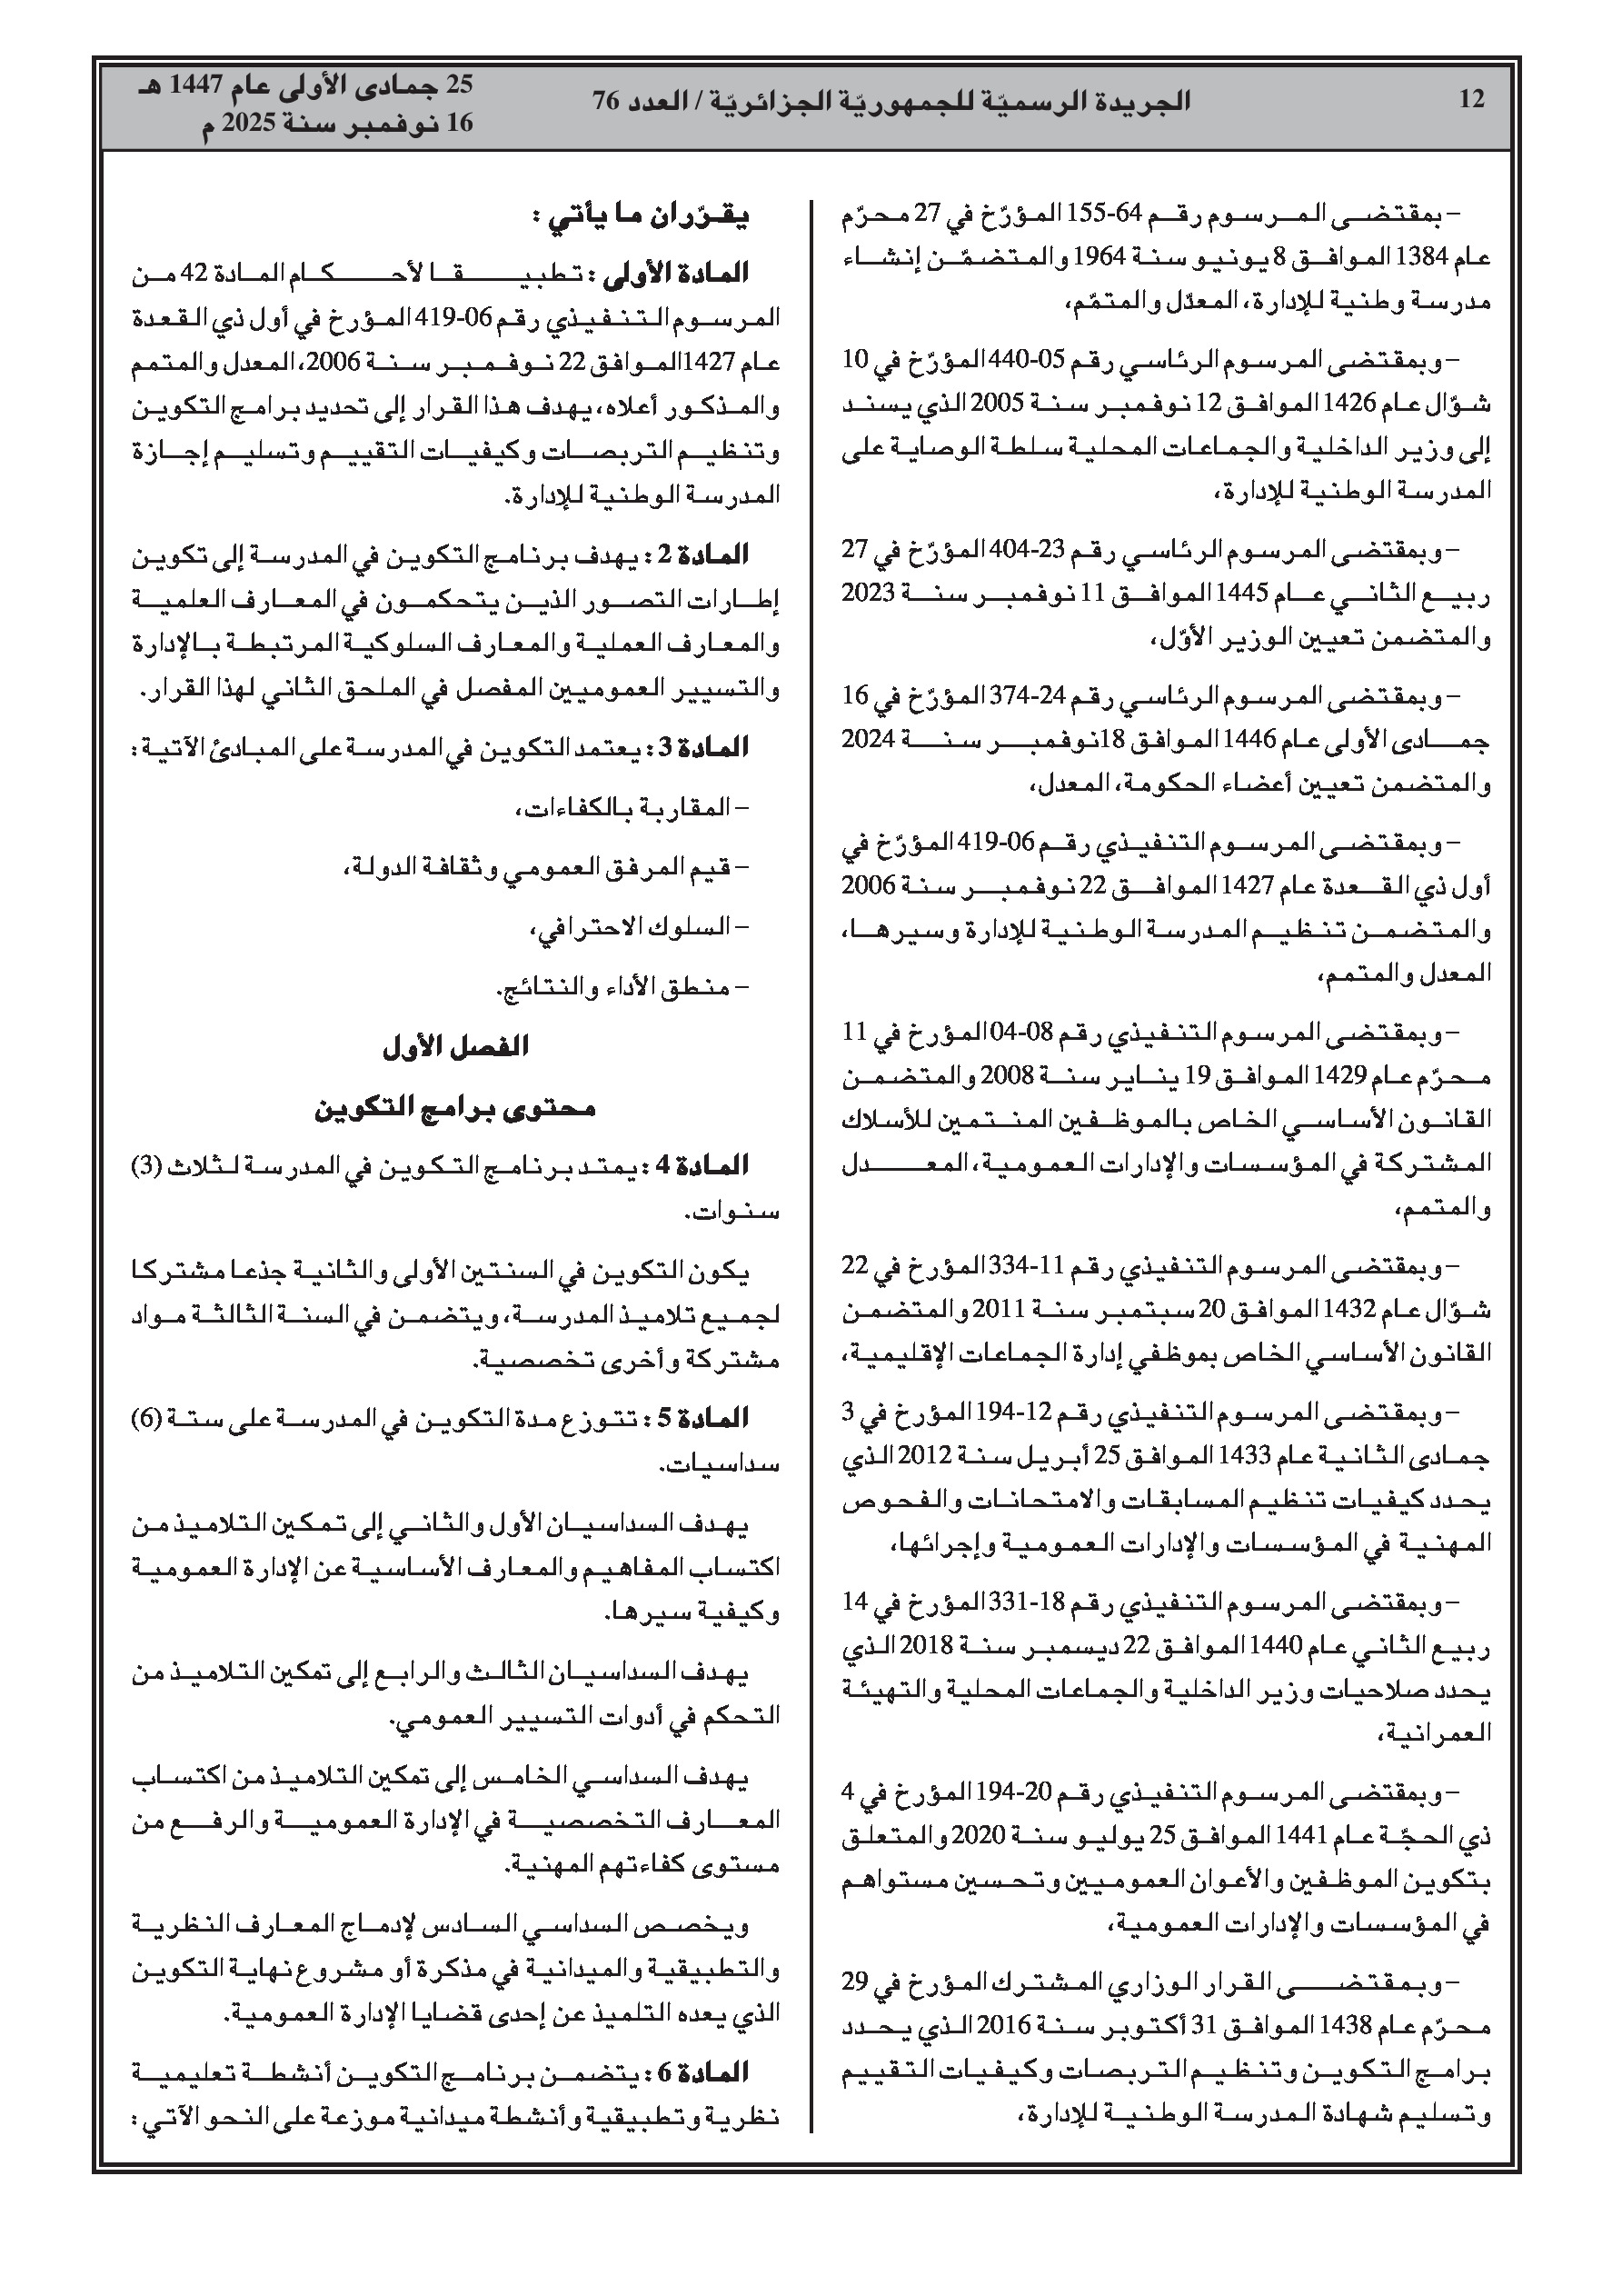 12
الجريدة الرسميّة للجمهوريّة الجزائريّة / العدد 76
25 جمادى الأولى عام 1447 هـ
16 نوفمبر سنة 2025 م
– بمقتضى المرسوم رقم 64-155 المؤرّخ في 27 محرّم
عام 1384 الموافق 8 يونيو سنة 1964 والمتضمّن إنشاء
مدرسة وطنية للإدارة، المعدّل والمتمّم،
– وبمقتضى المرسوم الرئاسي رقم 05-440 المؤرّخ في 10
شوّال عام 1426 الموافق 12 نوفمبر سنة 2005 الذي يسند
إلى وزير الداخلية والجماعات المحلية سلطة الوصاية على
المدرسة الوطنية للإدارة،
– وبمقتضى المرسوم الرئاسي رقم 23-404 المؤرّخ في 27
ربيع الثاني عام 1445 الموافق 11 نوفمبر سنة 2023
والمتضمن تعيين الوزير الأوّل،
– وبمقتضى المرسوم الرئاسي رقم 24-374 المؤرّخ في 16
جمادى الأولى عام 1446 الموافق 18نوفمبر سنة 2024
والمتضمن تعيين أعضاء الحكومة، المعدل،
– وبمقتضى المرسوم التنفيذي رقم 06-419 المؤرّخ في
أول ذي القعدة عام 1427 الموافق 22 نوفمبر سنة 2006
والمتضمن تنظيم المدرسة الوطنية للإدارة وسيرها،
المعدل والمتمم،
– وبمقتضى المرسوم التنفيذي رقم 08-04 المؤرخ في 11
محرّم عام 1429 الموافق 19 يناير سنة 2008 والمتضمن
القانون الأساسي الخاص بالموظفين المنتمين للأسلاك
المشتركة في المؤسسات والإدارات العمومية، المعدل
والمتمم،
– وبمقتضى المرسوم التنفيذي رقم 11-334 المؤرخ في 22
شوّال عام 1432 الموافق 20 سبتمبر سنة 2011 والمتضمن
القانون الأساسي الخاص بموظفي إدارة الجماعات الإقليمية،
– وبمقتضى المرسوم التنفيذي رقم 12-194 المؤرخ في 3
جمادى الثانية عام 1433 الموافق 25 أبريل سنة 2012 الذي
يحدد كيفيات تنظيم المسابقات والامتحانات والفحوص
المهنية في المؤسسات والإدارات العمومية وإجرائها،
– وبمقتضى المرسوم التنفيذي رقم 18-331 المؤرخ في 14
ربيع الثاني عام 1440 الموافق 22 ديسمبر سنة 2018 الذي
يحدد صلاحيات وزير الداخلية والجماعات المحلية والتهيئة
العمرانية،
– وبمقتضى المرسوم التنفيذي رقم 20-194 المؤرخ في 4
ذي الحجّة عام 1441 الموافق 25 يوليو سنة 2020 والمتعلق
بتكوين الموظفين والأعوان العموميين وتحسين مستواهم
في المؤسسات والإدارات العمومية،
– وبمقتضى القرار الوزاري المشترك المؤرخ في 29
محرّم عام 1438 الموافق 31 أكتوبر سنة 2016 الذي يحدد
برامج التكوين وتنظيم التربصات وكيفيات التقييم
وتسليم شهادة المدرسة الوطنية للإدارة،
يقرّران ما يأتي :
المادة الأولى : تطبيقا لأحكام المادة 42 من
المرسوم التنفيذي رقم 06-419 المؤرخ في أول ذي القعدة
عام 1427الموافق 22 نوفمبر سنة 2006، المعدل والمتمم
والمذكور أعلاه، يهدف هذا القرار إلى تحديد برامج التكوين
وتنظيم التربصات وكيفيات التقييم وتسليم إجازة
المدرسة الوطنية للإدارة.
المادة 2 : يهدف برنامج التكوين في المدرسة إلى تكوين
إطارات التصور الذين يتحكمون في المعارف العلمية
والمعارف العملية والمعارف السلوكية المرتبطة بالإدارة
والتسيير العموميين المفصل في الملحق الثاني لهذا القرار.
المادة 3 : يعتمد التكوين في المدرسة على المبادئ الآتية :
– المقاربة بالكفاءات،
– قيم المرفق العمومي وثقافة الدولة،
– السلوك الاحترافي،
– منطق الأداء والنتائج.
الفصل الأول
محتوى برامج التكوين
المادة 4 : يمتد برنامج التكوين في المدرسة لثلاث (3)
سنوات.
يكون التكوين في السنتين الأولى والثانية جذعا مشتركا
لجميع تلاميذ المدرسة، ويتضمن في السنة الثالثة مواد
مشتركة وأخرى تخصصية.
المادة 5 : تتوزع مدة التكوين في المدرسة على ستة (6)
سداسيات.
يهدف السداسيان الأول والثاني إلى تمكين التلاميذ من
اكتساب المفاهيم والمعارف الأساسية عن الإدارة العمومية
وكيفية سيرها.
يهدف السداسيان الثالث والرابع إلى تمكين التلاميذ من
التحكم في أدوات التسيير العمومي.
يهدف السداسي الخامس إلى تمكين التلاميذ من اكتساب
المعارف التخصصية في الإدارة العمومية والرفع من
مستوى كفاءتهم المهنية.
ويخصص السداسي السادس لإدماج المعارف النظرية
والتطبيقية والميدانية في مذكرة أو مشروع نهاية التكوين
الذي يعده التلميذ عن إحدى قضايا الإدارة العمومية.
المادة 6 : يتضمن برنامج التكوين أنشطة تعليمية
نظرية وتطبيقية وأنشطة ميدانية موزعة على النحو الآتي :